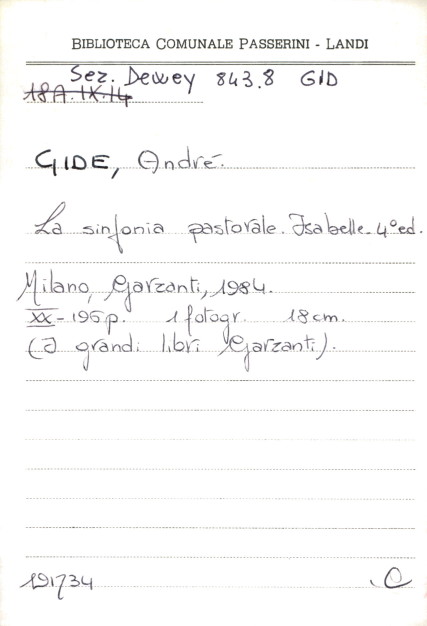 BIBLIOTECA COMUNALE PASSERINI - LANDI
Sez. Dewey 843.8 GID
18A.IX.14
GIDE, André.
La sinfonia pastorale. Isabelle. 4°ed.
Milano, Garzanti, 1984.
XX-195p. 1 fotogr. 18cm.
(I grandi libri Garzanti).
191734